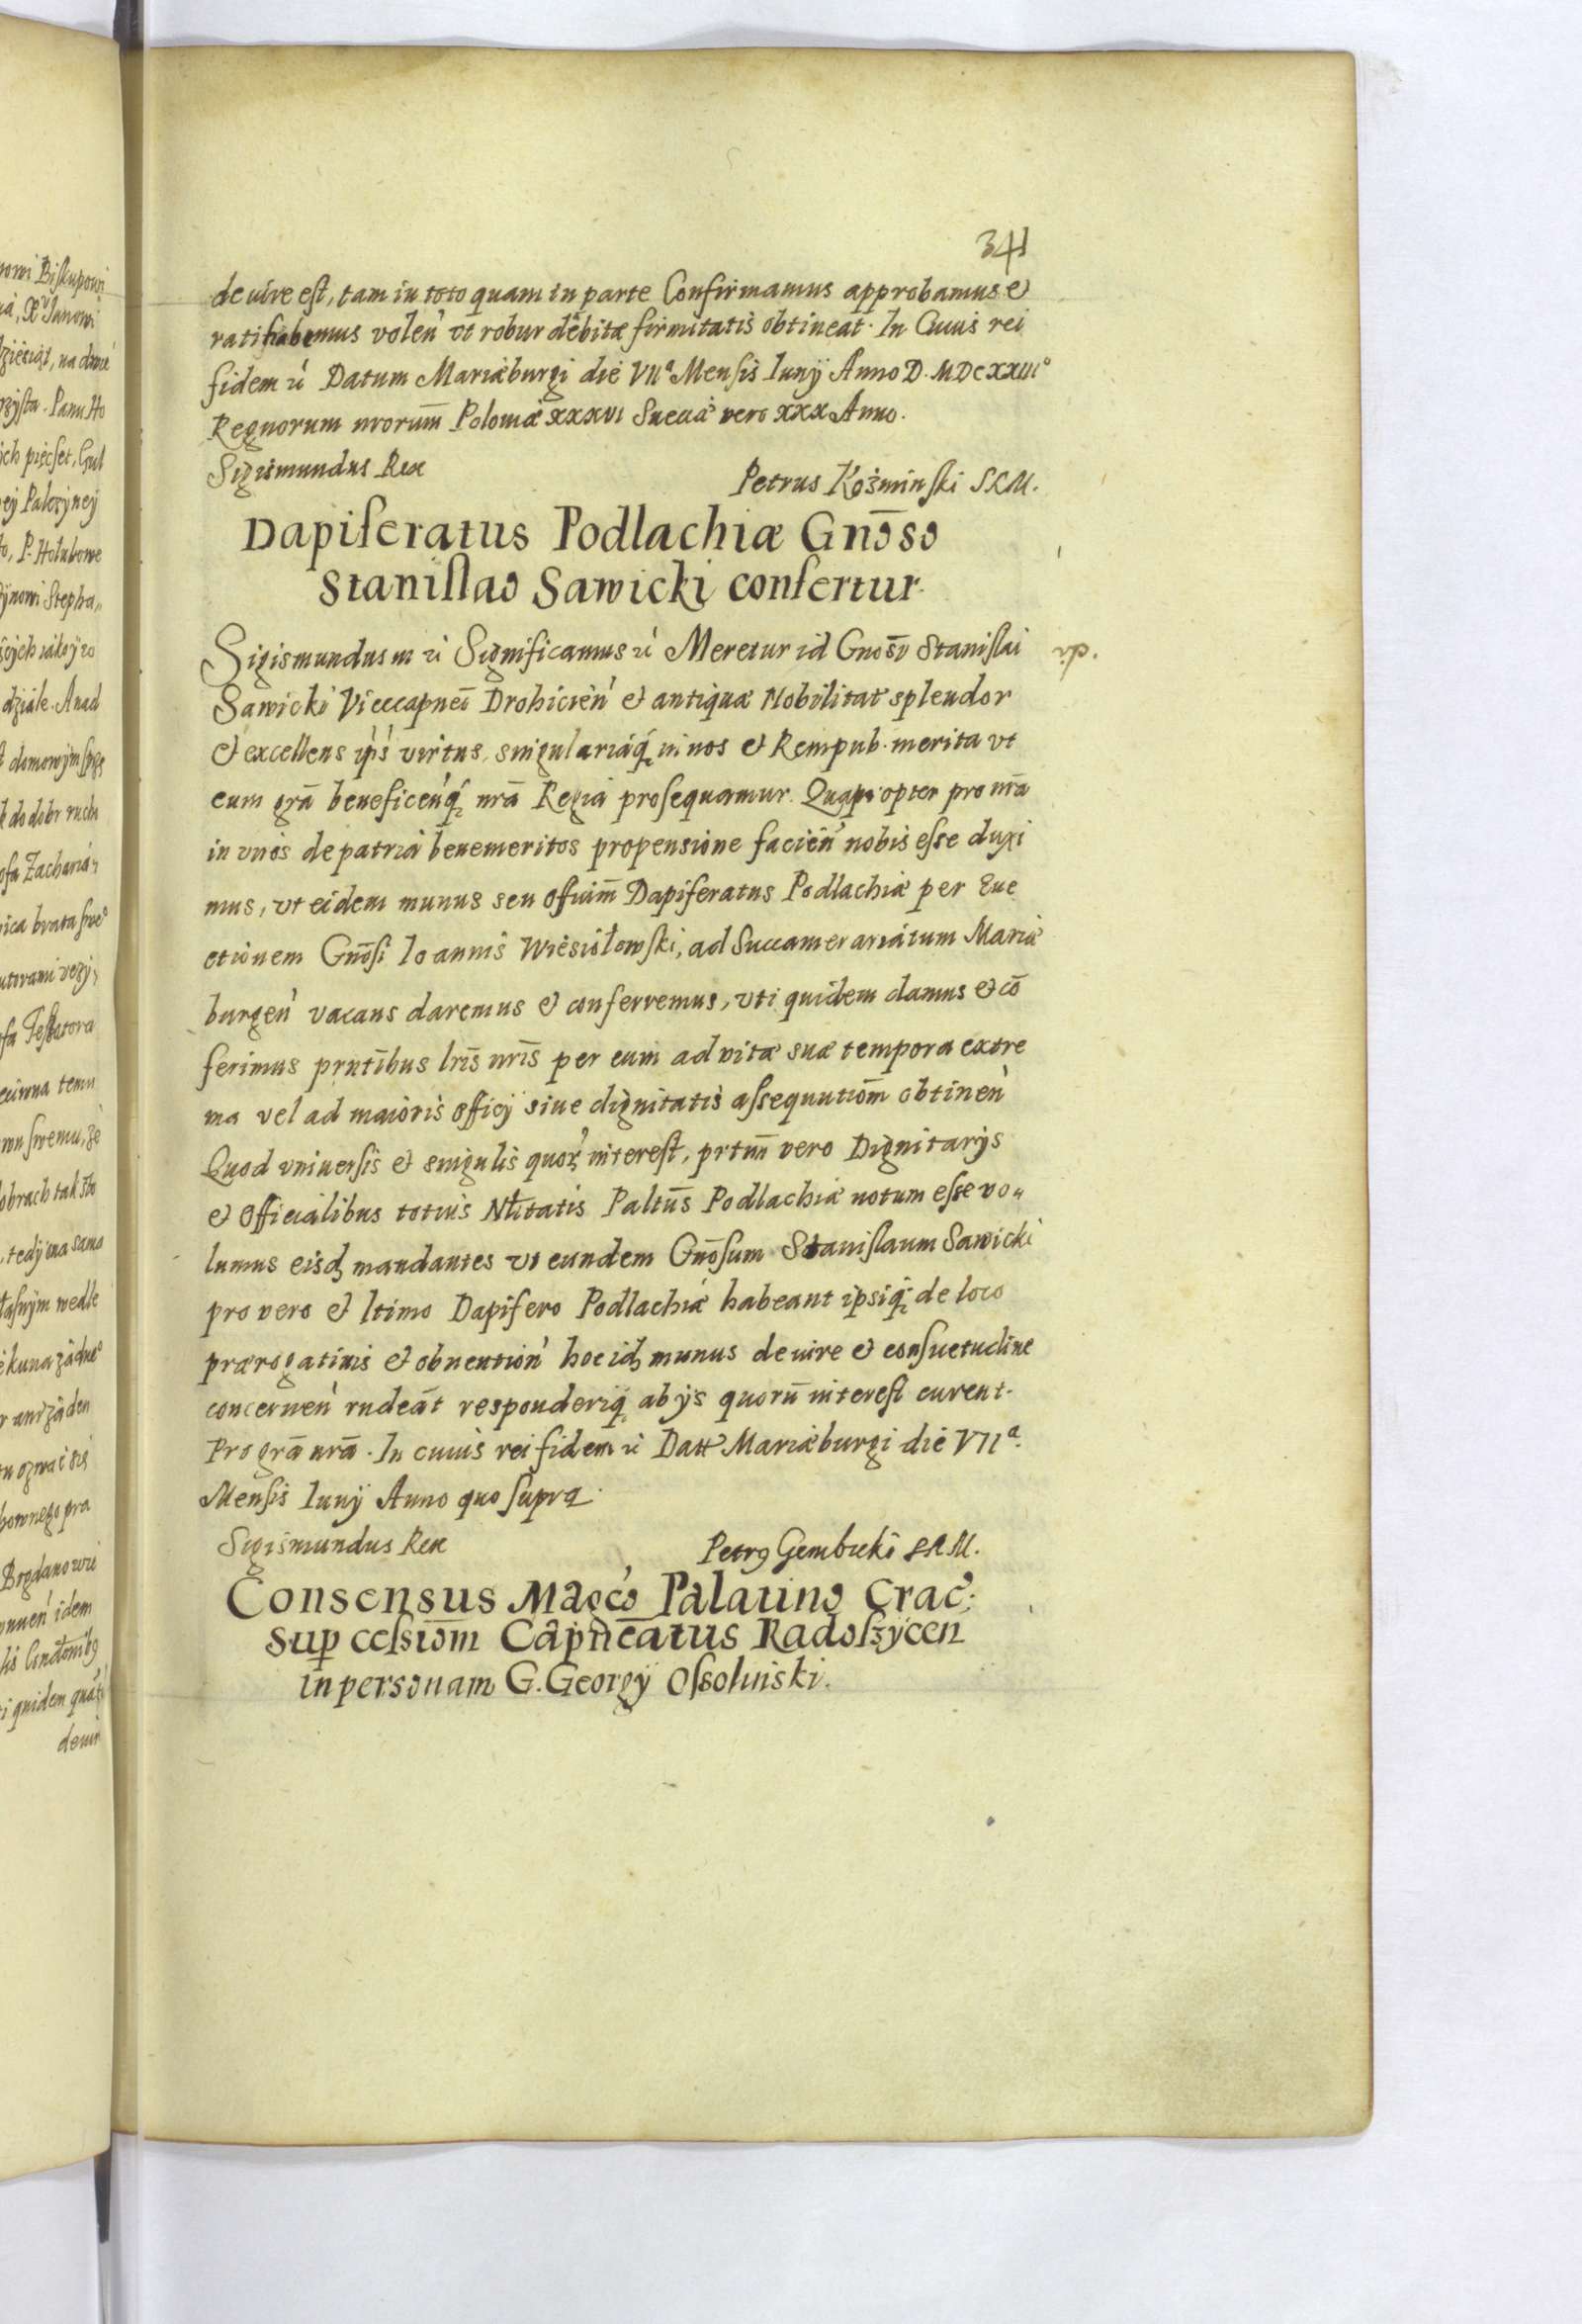 341
de iure est, tam in toto quam in parte Confirmamus approbamus et
ratihabemus volen̄ vt robur debitæ firmitatis obtineat. In Cuius rei
fidem Datum Mariæburgi die VIIª Mensis Iunÿ Anno D. MDCXXIII°
Regnorum nrorum̄ Poloniæ XXXVI Sueciæ vero XXX Anno.
Sigismundus Rex
Petrus Kożminski SRM.
Dapiferatus Podlachiæ Gnōso
Stanislao Sawicki confertur.
Sigismundus III Significamus Meretur id Gnosī Stanislai
v.p.
Sawicki Vicecapneī Drohicien̄ et antiquæ Nobilitat splendor
et excellens ip̄s virtus, singulariaq́ȝ in nos et Rempub. merita vt
eum grā beneficen̄q́ȝ nrā Regia prosequamur. Quapropter pro nrā
in viros de patria benemeritos propensione facien̄ nobis esse duxi
mus, vt eidem munus seu officium̄ Dapiferatus Podlachiæ per Eue
ctionem Gnōsi Ioannis Wiesiołowski, ad Succamerariatum Mariæ
burgen̄ vacans daremus et conferremus, vti quidem damus et cō
ferimus prntībus lrīs nrīs per eum ad vitæ suæ tempora extre
ma vel ad maioris officÿ siue dignitatis assequutiom̄ obtinen̄
Quod vniuersis et singulis quoꝝ interest, prtim̄ vero Dignitarÿs
et Officialibus totius Nbltatis Paltūs Podlachiæ notum esse vo„
lumus eisdȝ mandantes vt eundem Gnōsum Stanislaum Sawicki
pro vero et ltimo Dapifero Podlachiæ habeant ipsiq́ȝ de loco
prærogatiuis et obuention̄ hoc idȝ munus de iure et consuetudine
concernen̄ rndeāt responderiq́ȝ ab ÿs quorū interest curent.
Pro grā nrā. In cuius rei fidem Datt Mariæburgi die VIIª.
Mensis Iunÿ Anno quo supra
Sigismundus Rex
Petrꝰ Gembicki SRM.
Consensus Magcō Palatino Crac̄.
Suꝑ cessiom̄ Cāpn̄eatus Radoszÿcen
in personam G. Georgÿ Ossolinski.